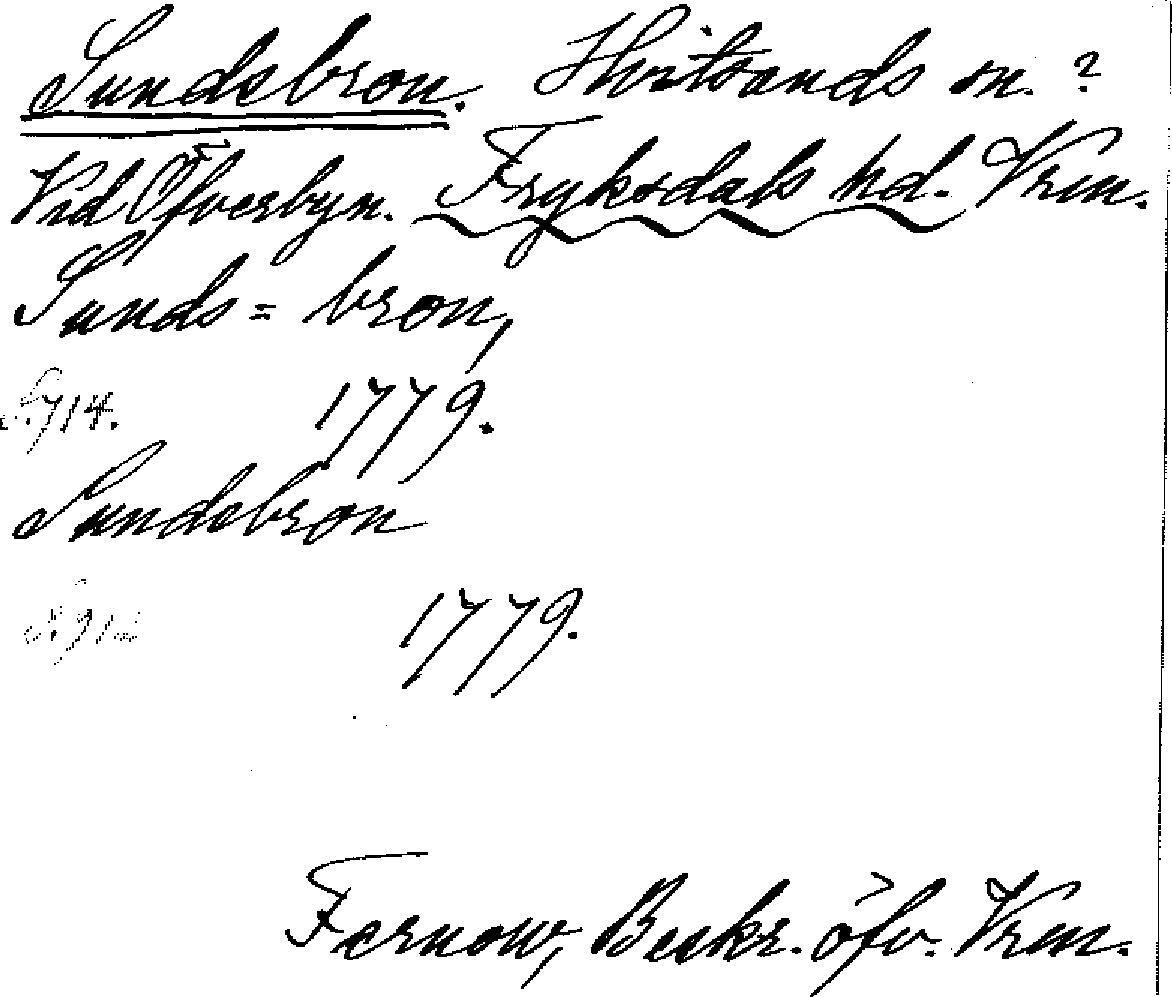 Sundsbron. Hvitsands sn. ?
Vid Öfverbyn. Fryksdals hd. Vrm.
Sunds= bron,
S. 714. 1779.
Sundsbron
1779.
Fernow, Beskr. öfv. Vrm.